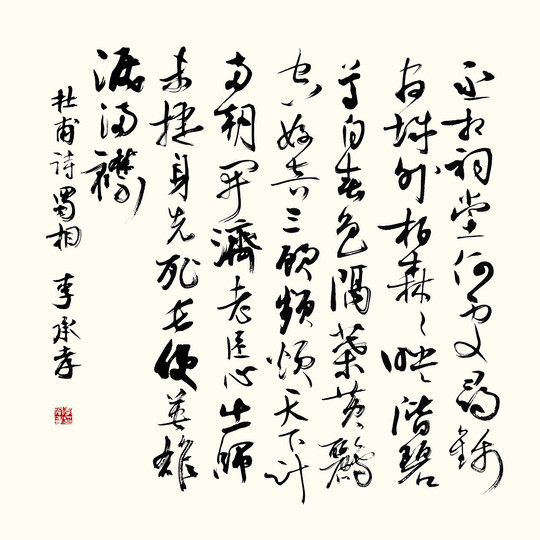 丞相祠堂何處尋錦
官城外柏森〻映階碧
草自春色隔葉黃鸝
空好音三顧頻煩天下計
兩朝開濟老臣心出師
未捷身先死長使英雄
淚滿襟
杜甫詩蜀相 李承孝